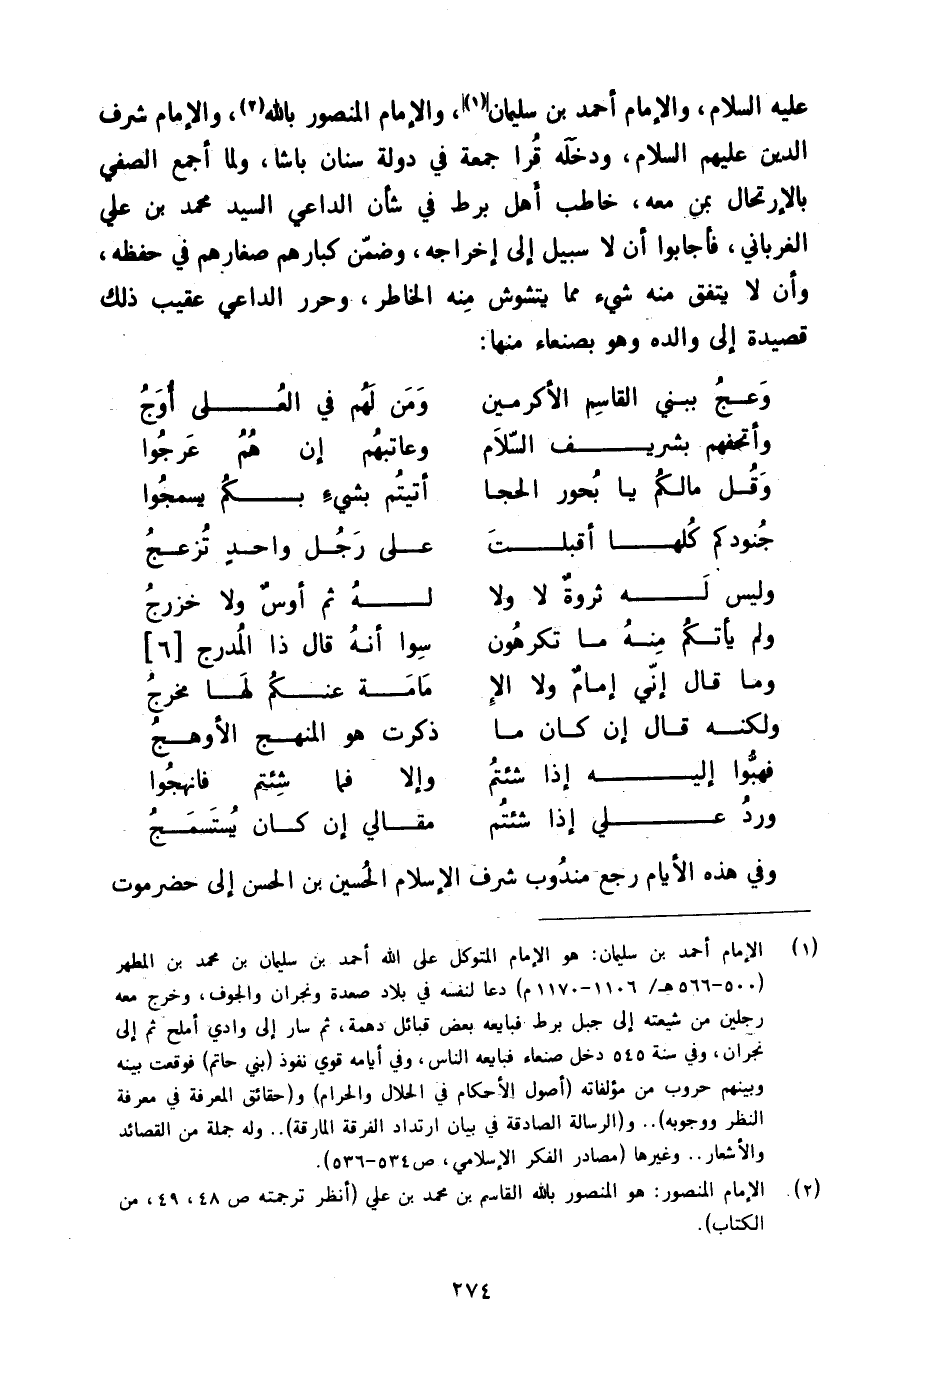 عليه السلام، والإمام أحمد بن سليمان(١)، والإمام المنصور بالله(٢)، والإمام شرف
الدين عليهم السلام، ودخلَه قُرا جمعة في دولة سنان باشا، ولما أجمع الصفي
بالإرتحال بمن معه، خاطب أهل برط في شأن الداعي السيد محمد بن علي
الغرباني، فأجابوا أن لا سبيل إلى إخراجه، وضمّن كبارهم صغارهم في حفظه،
وأن لا يتفق منه شيء مما يتشوش مِنه الخاطر، وحرر الداعي عقيب ذلك
قصيدة إلى والده وهو بصنعاء منها:
وَعــجُ ببني القاسِم الأكرمـين وَمَن لَهُم في العُـــلى أَوَجُ
وأتحفهم بشريــــف السّلاَم وعاتبهُم إن هُمُ عَرجُوا
وَقُــل مالكمُ يـا بُحور الحجـا أتيتُم بشيءِ بـــكمُ يسمجُوا
جُنودكم كُلهــــا أقبلــتَ عــلى رَجُـل واحــدٍ تُزعــجُ
وليس لَــــه ثروةٌ لا ولا لــــهُ ثم أوسٌ ولا خزرجُ
ولم يأتــكمُ مِنــهُ مـا تكرهُون سِوا أنـهُ قال ذا المُدرج [٦]
ومـا قـال إنّي إمامٌ ولا الإِ مَامَــة عنــكمُ لهَـا مخرجُ
ولكنــه قـال إن كـان مـا ذكرت هو المنهـج الأوهـجُ
فهبُّوا إليــــه إذا شئتمُ وإلا فما شِئتم فانهجُوا
وردُ عــــلي إذا شئتُم مقـالي إن كـان يُستَسمَـجُ
وفي هذه الأيام رجع مندُوب شرف الإسلام الحُسين بن الحسن إلى حضرموت
(١) الإمام أحمد بن سليمان: هو الإمام المتوكل على الله أحمد بن سليمان بن محمد بن المطهر
(٥٠٠-٥٦٦هـ/ ١١٠٦-١١٧٠م) دعا لنفسه في بلاد صعدة ونجران والجوف، وخرج معه
رجلين من شيعته إلى جبل برط فبايعه بعض قبائل دهمة، ثم سار إلى وادي أملح ثم إلى
نجران، وفي سنة ٥٤٥ دخل صنعاء فبايعه الناس، وفي أيامه قوي نفوذ (بني حاتم) فوقعت بينه
وبينهم حروب من مؤلفاته (أصول الأحكام في الحلال والحرام) و(حقائق المعرفة في معرفة
النظر ووجوبه).. و(الرسالة الصادقة في بيان ارتداد الفرقة المارقة).. وله جملة من القصائد
والأشعار.. وغيرها (مصادر الفكر الإسلامي، ص٥٣٤-٥٣٦).
(٢) الإمام المنصور: هو المنصور بالله القاسم بن محمد بن علي (أنظر ترجمته ص ٤٨، ٤٩، من
الكتاب).
٢٧٤